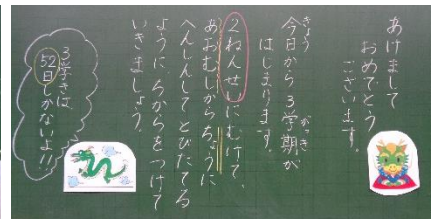 あけまして
おめでとう
ございます。
きょう がっき
今日から3学期が
はじまります。
2ねんせいにむけて、
あおむしからちょうに
へんしんして とびたてる
ように ちからをつけて
いきましょう。
3学きは、
52日しかないよ!!